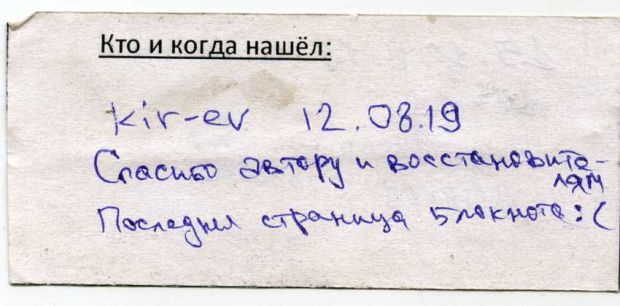 Кто и когда нашёл:
kir-ev 12.08.19
Спасибо автору и восстановите-
лям
Последняя страница блокнота :(